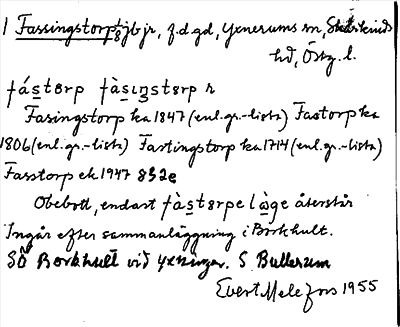 1 Fassingstorp 8 jb jr, f.d. gd, Yxnerums sn,
hd, Östg. l.
fástørp fàsıŋstørp r
Fasingstorp ka 1847 (enl. gr.-lista) Fastorp ka
1806 (enl. gr.-lista) Fastingstorp ka 1714 (enl. gr.-lista)
Fasstorp ek 1947 8S2e
Obebott, endast fàstørpelàge återstår
Ingår efter sammanläggning i Borkhult.
SÖ Borkhult vid Yxningen. S Bullerum
Evert Melefors 1955